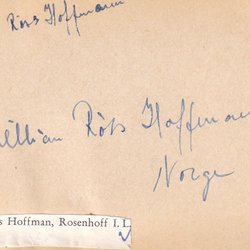 Röts Hoffmann
William Röts Hoffmann
Norge
s Hoffman, Rosenhoff I. L.